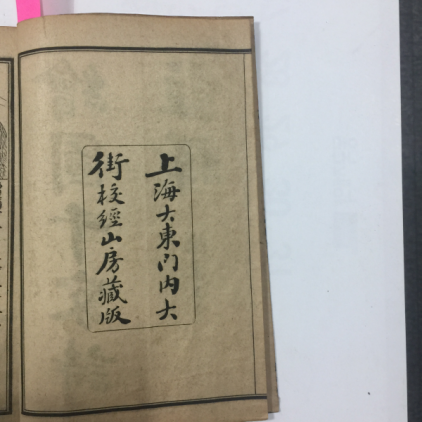 上海大東門内大
街校經山房藏版